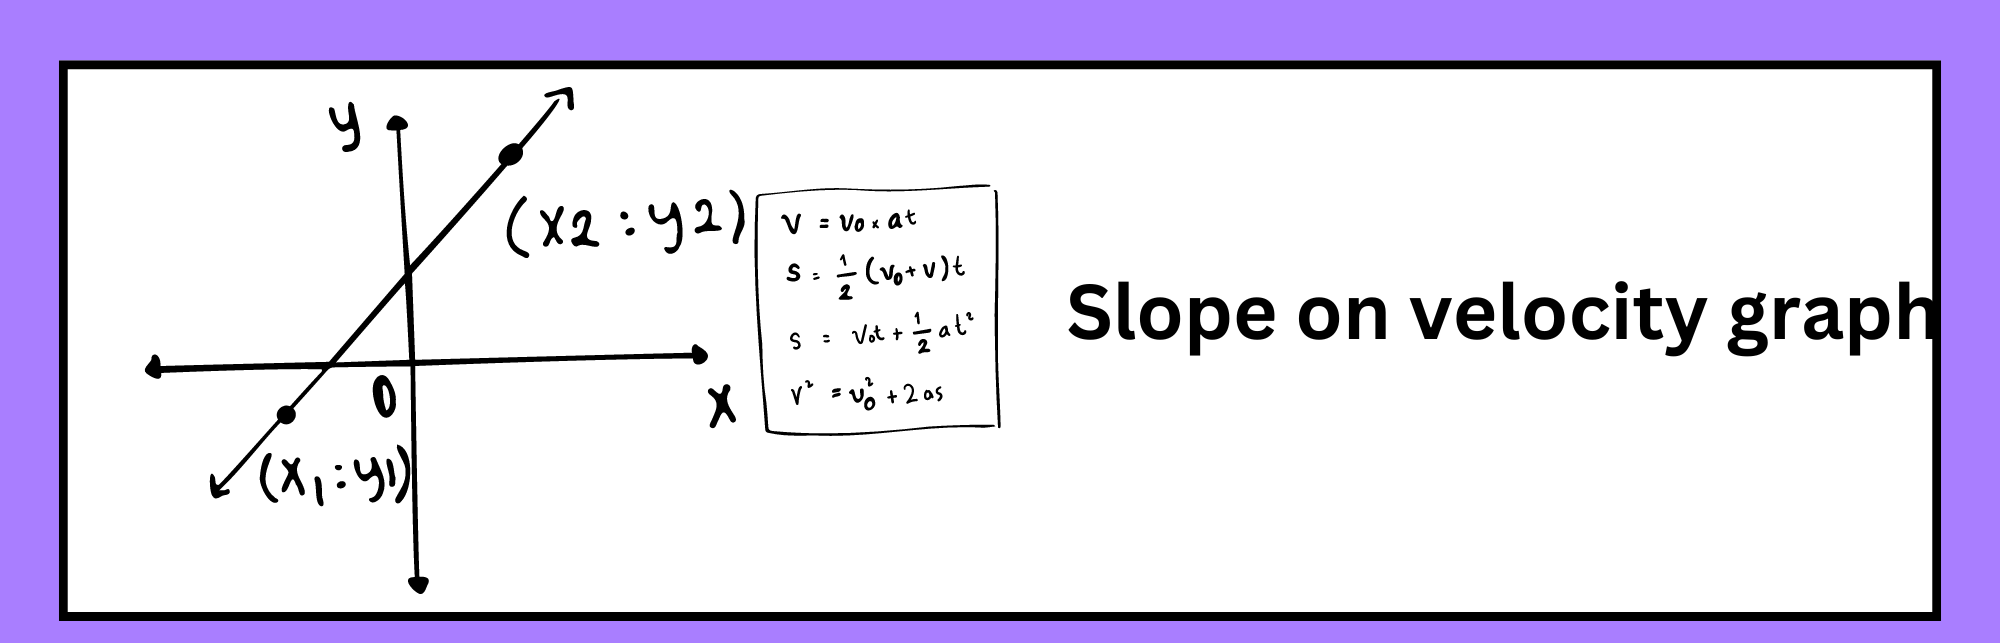 y
(x2 : y2)
0
x
(x1 : y1)
v = v0 × at
s = 1/2 (v0 + v)t
s = v0t + 1/2 at²
v² = v0² + 2as
Slope on velocity graph